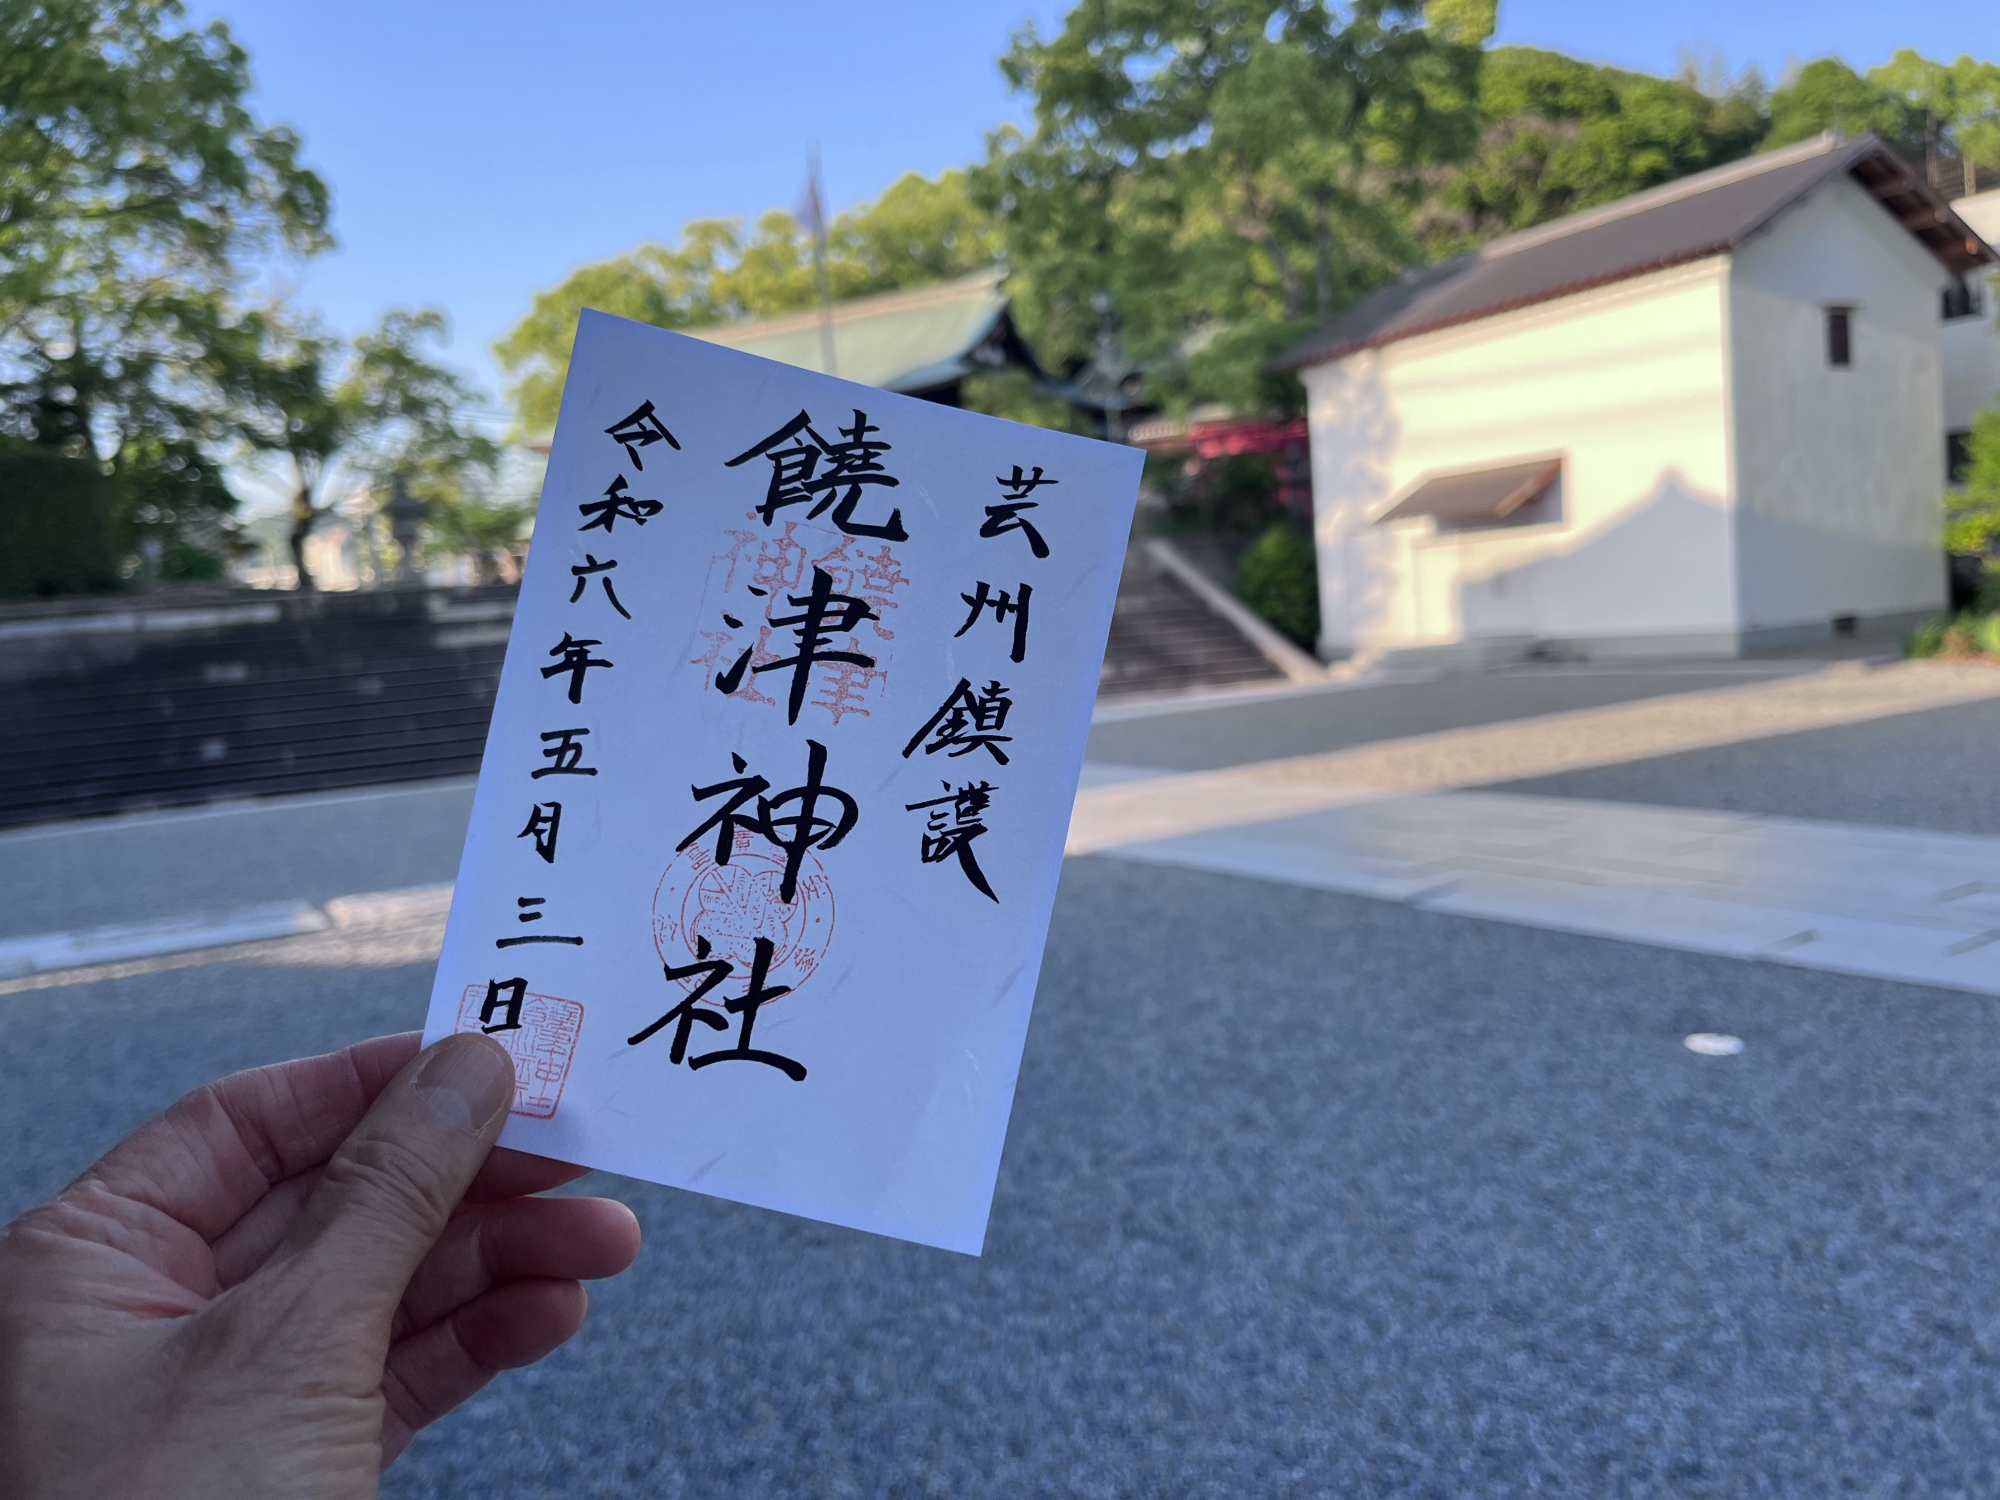 芸州鎮護
饒津神社
令和六年五月三日
饒津
神社